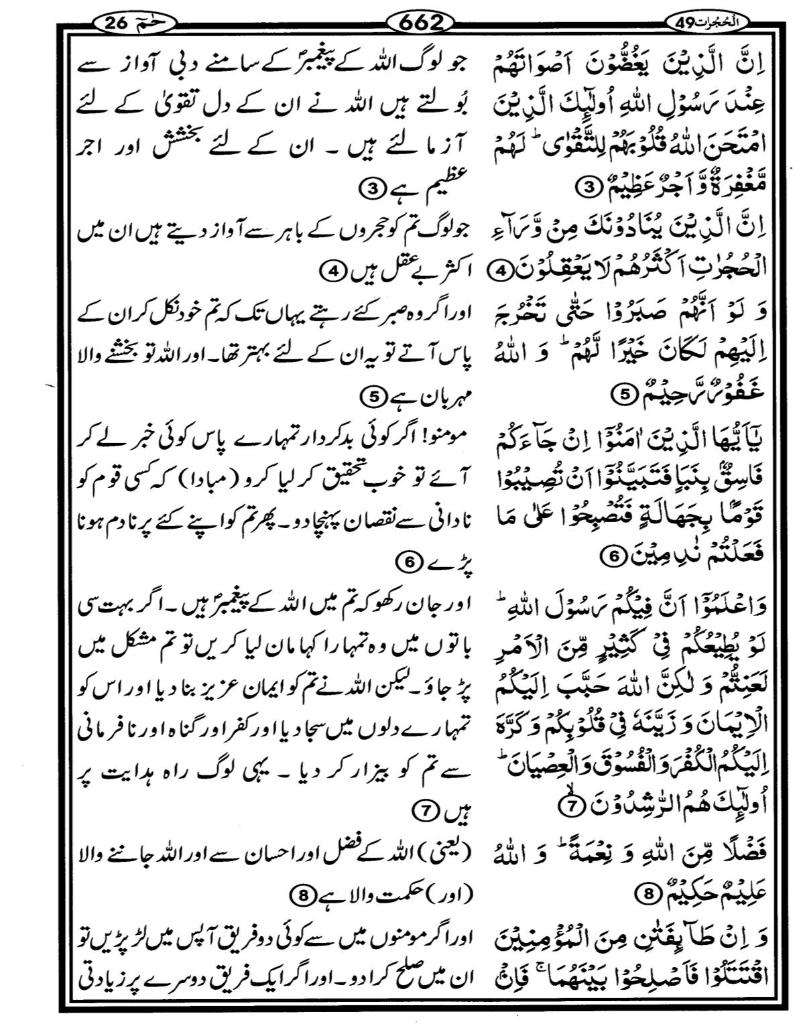 الحُجُرات 49
662
حٰمٓ 26
اِنَّ الَّذِيۡنَ يَغُضُّوۡنَ اَصۡوَاتَهُمۡ
عِنۡدَ رَسُوۡلِ اللّٰهِ اُولٰٓٮِٕكَ الَّذِيۡنَ
امۡتَحَنَ اللّٰهُ قُلُوۡبَهُمۡ لِلتَّقۡوٰى‌ؕ لَهُمۡ
مَّغۡفِرَةٌ وَّاَجۡرٌ عَظِيۡمٌ ③
جو لوگ اللہ کے پیغمبرؐ کے سامنے دبی آواز سے
بولتے ہیں اللہ نے ان کے دل تقویٰ کے لئے
آزما لئے ہیں ۔ ان کے لئے بخشش اور اجر
عظیم ہے ③
اِنَّ الَّذِيۡنَ يُنَادُوۡنَكَ مِنۡ وَّرَآءِ
الۡحُجُرٰتِ اَكۡثَرُهُمۡ لَا يَعۡقِلُوۡنَ ④
جو لوگ تم کو حجروں کے باہر سے آواز دیتے ہیں ان میں
اکثر بے عقل ہیں ④
وَلَوۡ اَنَّهُمۡ صَبَرُوۡا حَتّٰى تَخۡرُجَ
اِلَيۡهِمۡ لَكَانَ خَيۡرًا لَّهُمۡ‌ؕ وَاللّٰهُ
غَفُوۡرٌ رَّحِيۡمٌ ⑤
اور اگر وہ صبر کئے رہتے یہاں تک کہ تم خود نکل کر ان کے
پاس آتے تو یہ ان کے لئے بہتر تھا۔ اور اللہ تو بخشنے والا
مہربان ہے ⑤
يٰۤاَيُّهَا الَّذِيۡنَ اٰمَنُوۡۤا اِنۡ جَآءَكُمۡ
فَاسِقٌۢ بِنَبَاٍ فَتَبَيَّنُوۡۤا اَنۡ تُصِيۡبُوۡا
قَوۡمًۢا بِجَهَالَةٍ فَتُصۡبِحُوۡا عَلٰى مَا
فَعَلۡتُمۡ نٰدِمِيۡنَ ⑥
مومنو! اگر کوئی بدکردار تمہارے پاس کوئی خبر لے کر
آئے تو خوب تحقیق کر لیا کرو (مبادا) کہ کسی قوم کو
نادانی سے نقصان پہنچا دو۔ پھر تم کو اپنے کئے پر نادم ہونا
پڑے ⑥
وَاعۡلَمُوۡۤا اَنَّ فِيۡكُمۡ رَسُوۡلَ اللّٰهِ‌ؕ
لَوۡ يُطِيۡعُكُمۡ فِىۡ كَثِيۡرٍ مِّنَ الۡاَمۡرِ
لَعَنِتُّمۡ وَلٰكِنَّ اللّٰهَ حَبَّبَ اِلَيۡكُمُ
الۡاِيۡمَانَ وَزَيَّنَهٗ فِىۡ قُلُوۡبِكُمۡ وَكَرَّهَ
اِلَيۡكُمُ الۡكُفۡرَ وَالۡفُسُوۡقَ وَالۡعِصۡيَانَ‌ؕ
اُولٰٓٮِٕكَ هُمُ الرّٰشِدُوۡنَۙ ⑦
اور جان رکھو کہ تم میں اللہ کے پیغمبرؐ ہیں ۔ اگر بہت سی
باتوں میں وہ تمہارا کہا مان لیا کریں تو تم مشکل میں
پڑ جاؤ۔ لیکن اللہ نے تم کو ایمان عزیز بنا دیا اور اس کو
تمہارے دلوں میں سجا دیا اور کفر اور گناہ اور نافرمانی
سے تم کو بیزار کر دیا ۔ یہی لوگ راہ ہدایت پر
ہیں ⑦
فَضۡلًا مِّنَ اللّٰهِ وَنِعۡمَةً‌ؕ وَاللّٰهُ
عَلِيۡمٌ حَكِيۡمٌ ⑧
(یعنی) اللہ کے فضل اور احسان سے اور اللہ جاننے والا
(اور) حکمت والا ہے ⑧
وَاِنۡ طَآٮِٕفَتٰنِ مِنَ الۡمُؤۡمِنِيۡنَ
اقۡتَتَلُوۡا فَاَصۡلِحُوۡا بَيۡنَهُمَا‌ۚ فَاِنۡۢ
اور اگر مومنوں میں سے کوئی دو فریق آپس میں لڑ پڑیں تو
ان میں صلح کرا دو۔ اور اگر ایک فریق دوسرے پر زیادتی